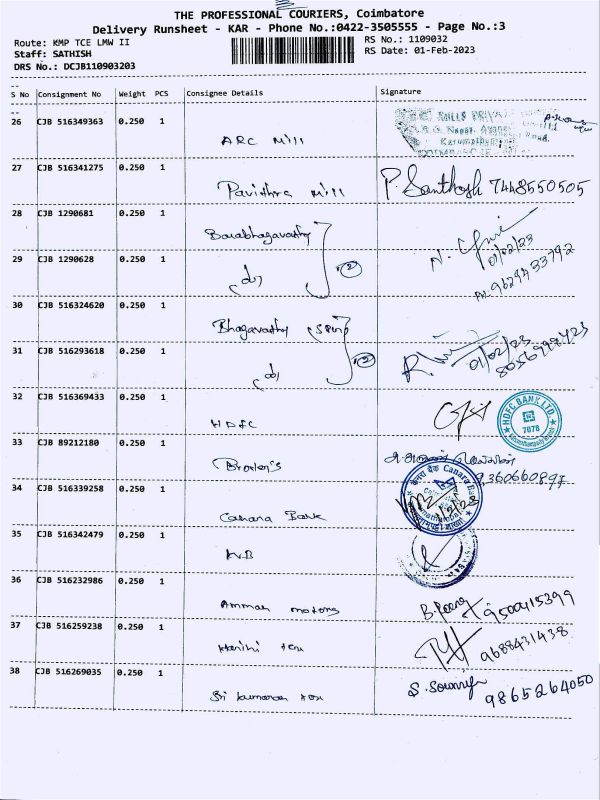 THE PROFESSIONAL COURIERS, Coimbatore
Delivery Runsheet - KAR - Phone No.:0422-3505555 - Page No.:3
Route: KMP TCE LMW II
RS No.: 1109032
Staff: SATHISH
RS Date: 01-Feb-2023
DRS No.: DCJB110903203
S No Consignment No Weight PCS Consignee Details Signature
26 CJB 516349363 0.250 1 ARC Mill
27 CJB 516341275 0.250 1 Pavithra Mill P. Santhosh 7448550505
28 CJB 1290681 0.250 1
29 CJB 1290628 0.250 1 do 2 01/02/23
9629433792
30 CJB 516324620 0.250 1 Bhagavathy Spin
31 CJB 516293618 0.250 1 do 2 01/02/23
8056998423
32 CJB 516369433 0.250 1 HDFC HDFC BANK LTD. 7078
33 CJB 89212180 0.250 1
34 CJB 516339258 0.250 1 Canara Bank केनरा बैंक Canara Bank
35 CJB 516342479 0.250 1 KVB
36 CJB 516232986 0.250 1 Amman motors 9500415399
37 CJB 516259238 0.250 1 Harihi tex 9688431438
38 CJB 516269035 0.250 1 Sri kumaran tex S. Sowmya 9865264050